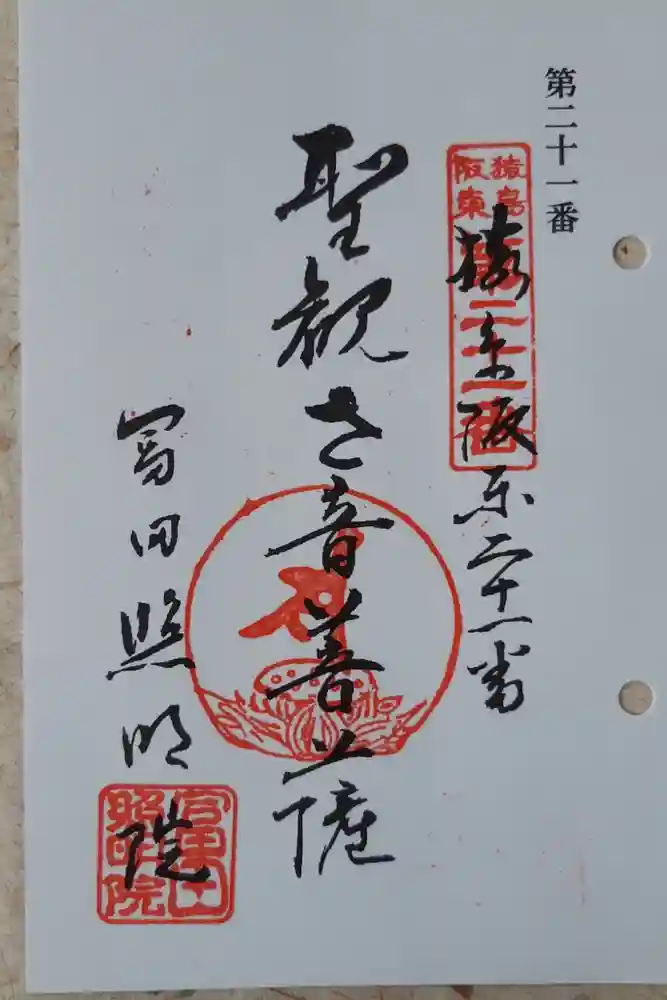 第二十一番
猿島
阪東
第二十一番
猿島阪東二十一番
聖観世音菩薩
冨田照明院
冨田
照明院